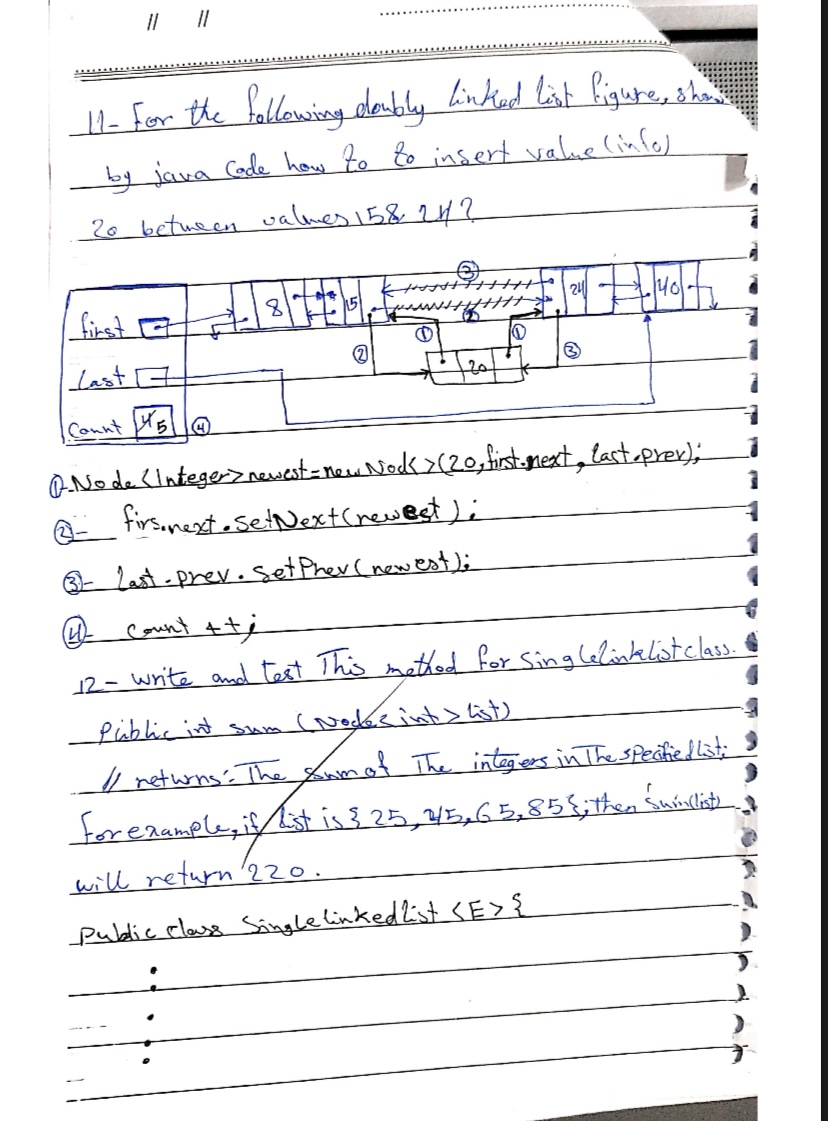 // //
11- For the following doubly linked list figure, show
by java code how to to insert value (info)
20 between values 15 & 24?
③
first 8 15 24 40
② ① ①
Last ② 20 ③
Count 4 5 ④
①- Node <Integer> newest = new Nod< >(20, first.next, last.prev);
②- firs.next.setNext(newest);
③- last.prev.setPrev(newest);
④- count ++;
12- write and test This method for Singlelinklistclass.
Public int sum (Node<int> list)
// returns: The sum of The integers in The specified list;
for example, if list is {25, 45, 65, 85}; then sum(list)
will return 220.
public class Singlelinkedlist <E> {